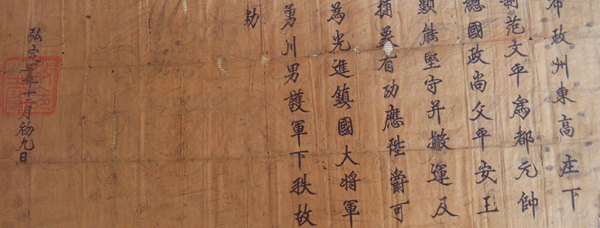 布政州東高庄下
制范文平為都元帥
總國政尚父平安王
顥能堅守并搬運及
捕吴有功應陞爵可
為光進鎮國大將軍
勇川男護軍下秩故
勑
弘定年十二月初九日